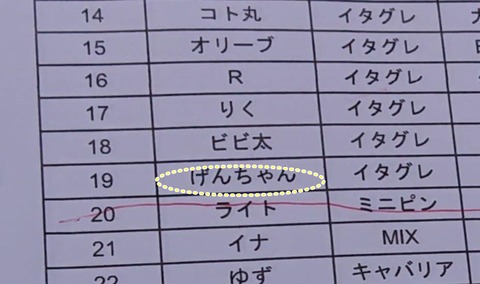 14 コト丸 イタグレ
15 オリーブ イタグレ
16 R イタグレ
17 りく イタグレ
18 ビビ太 イタグレ
19 げんちゃん イタグレ
20 ライト ミニピン
21 イナ MIX
22 ゆず キャバリア